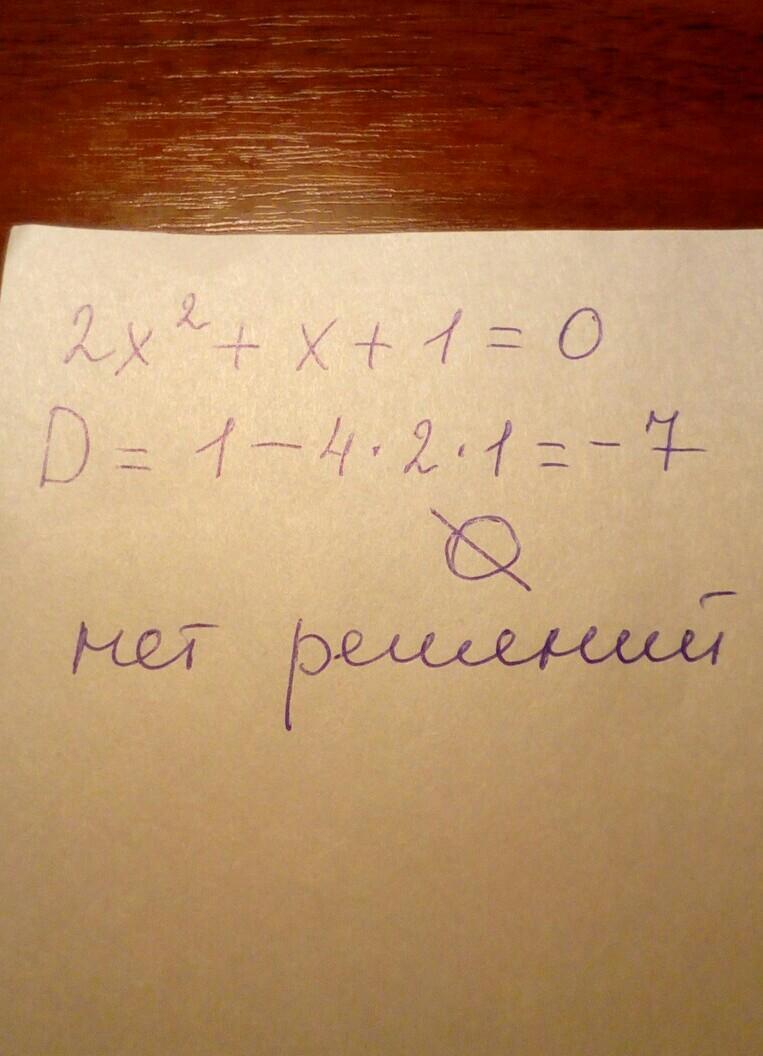 2x² + x + 1 = 0
D = 1 - 4 · 2 · 1 = - 7
∅
нет решений